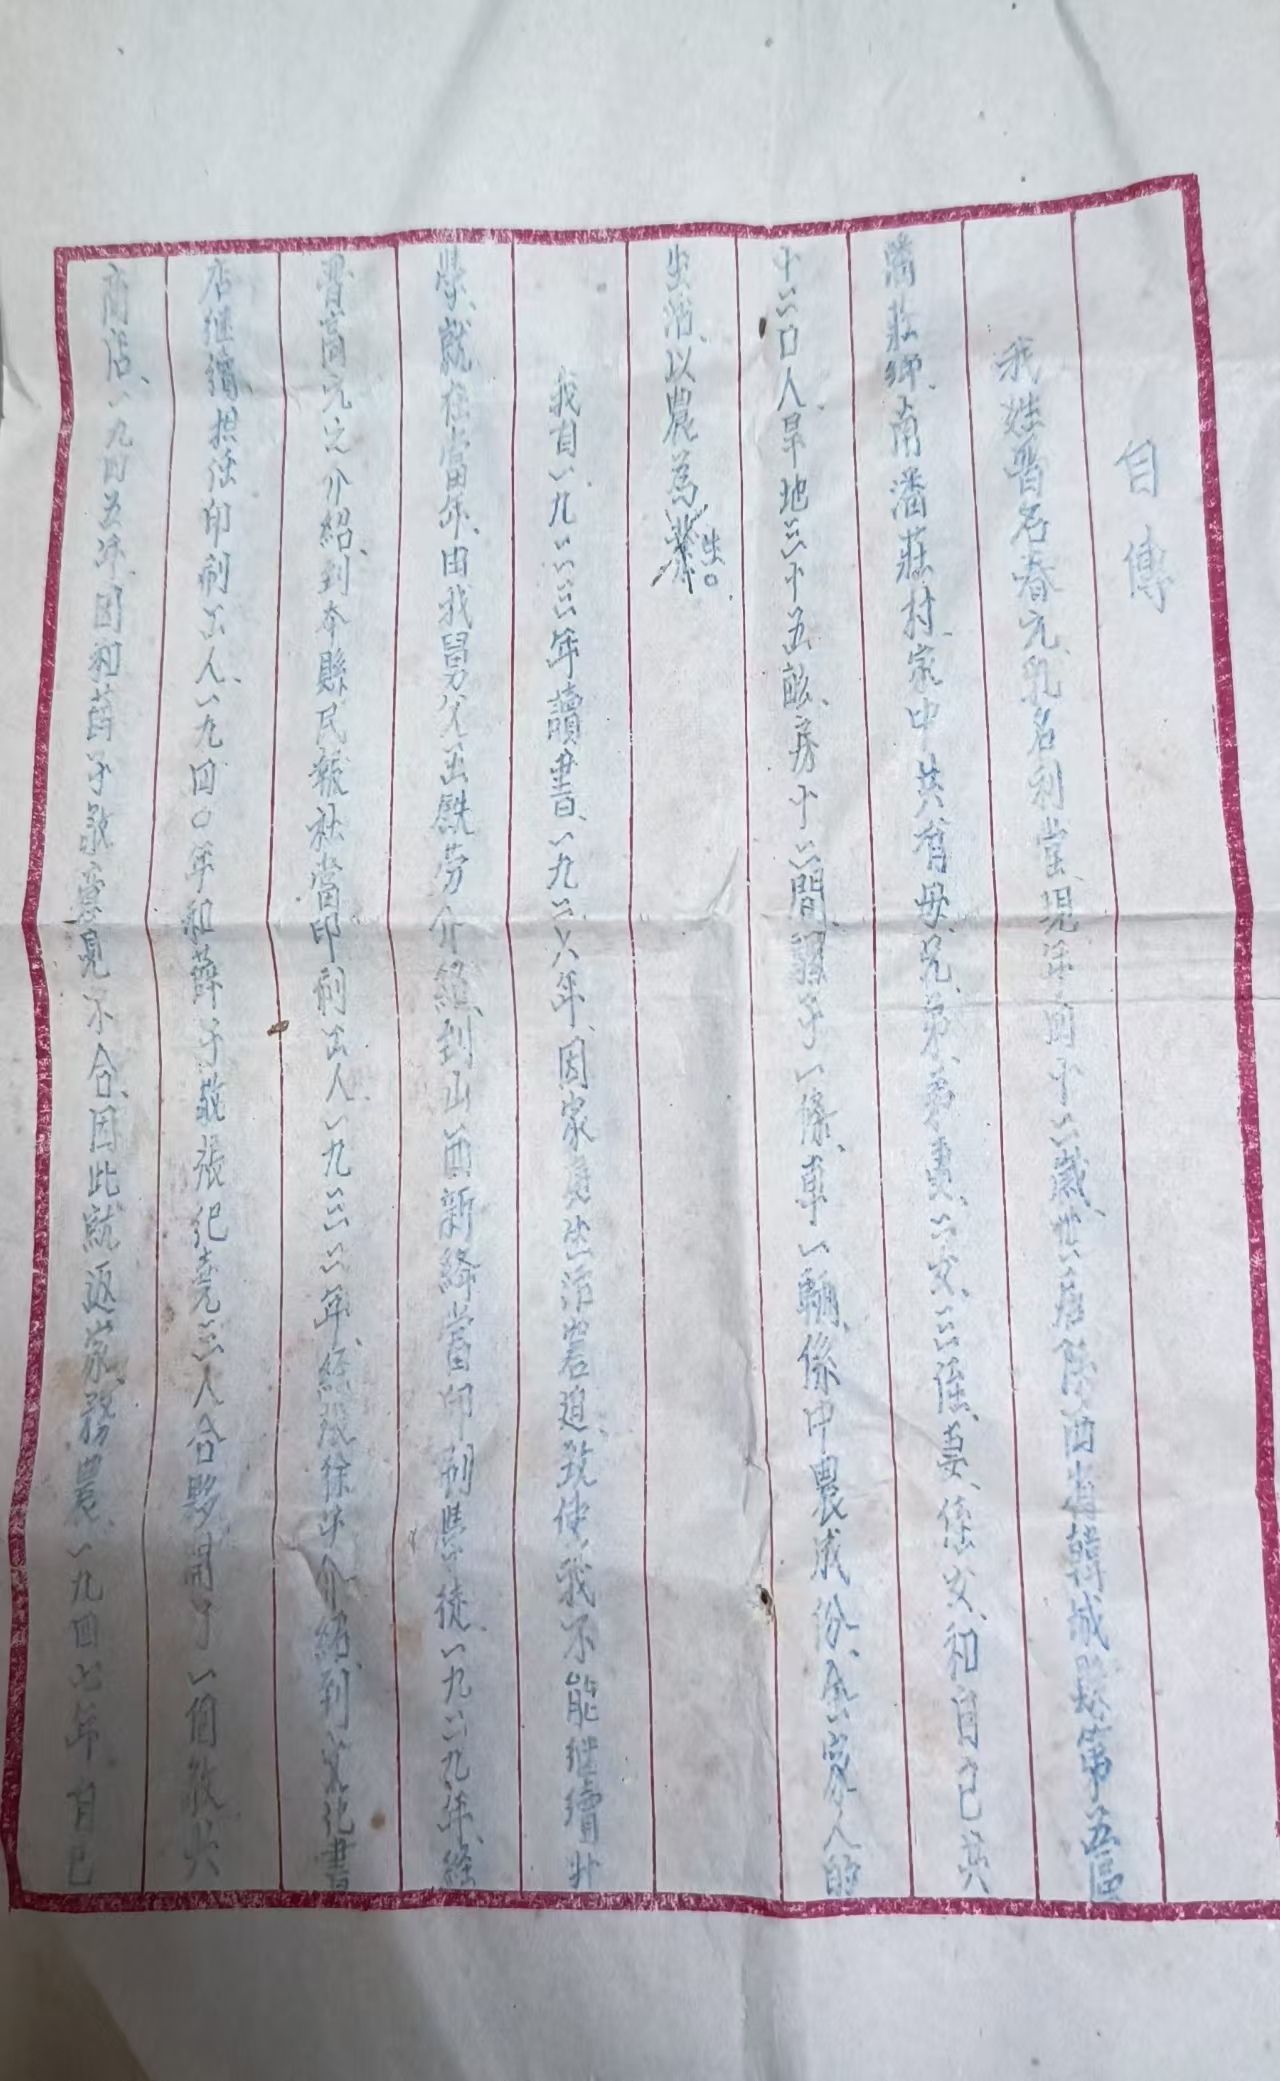 自傳
我姓晋名春元、乳名利堂、現年四十二歲、世居陕西省韓城縣第五區
潘莊鄉、南潘莊村、家中共有母、兄、弟、弟妻、二女、三侄、妻、侄女、和自己共
十二口人旱地三十五畝、房十二間、騾子一條、車一輛、係中農成份、全家人的
生活、以農為生。
我自一九二三年讀書、一九二六年、因家庭生活窘迫、致使我不能继續升
學、就在當年、由我舅父王熙芳介紹、到山西新絳當印刷學徒、一九二九年、經
晋高元之介紹、到本縣民報社當印刷工人、一九三二年、經張徐平介紹、到文化書
店继續担任印刷工人、一九四〇年和薛子敬張紀堯三人合夥開了一個敬共
商店、一九四五年、因和薛子敬意見不合、因此就返家務農、一九四七年、自己